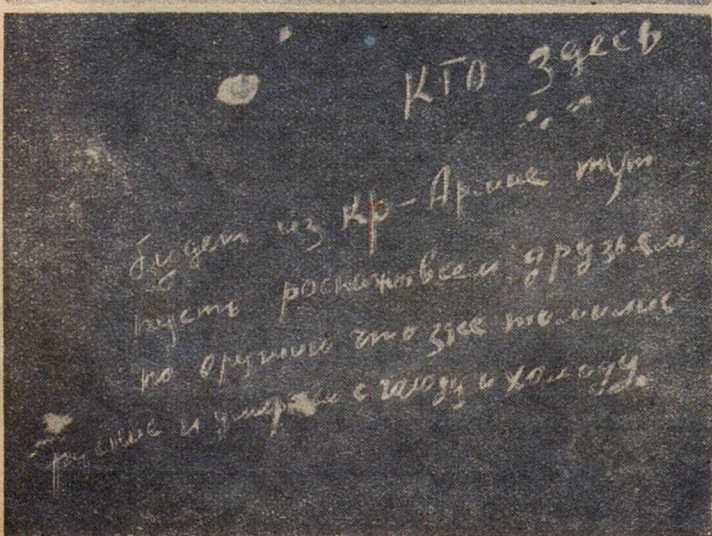 кто здесь
будет из Кр-Армие тут
пусть роскажт всем друзьям
по оружию что здес томились
и умерали с голоду и холоду